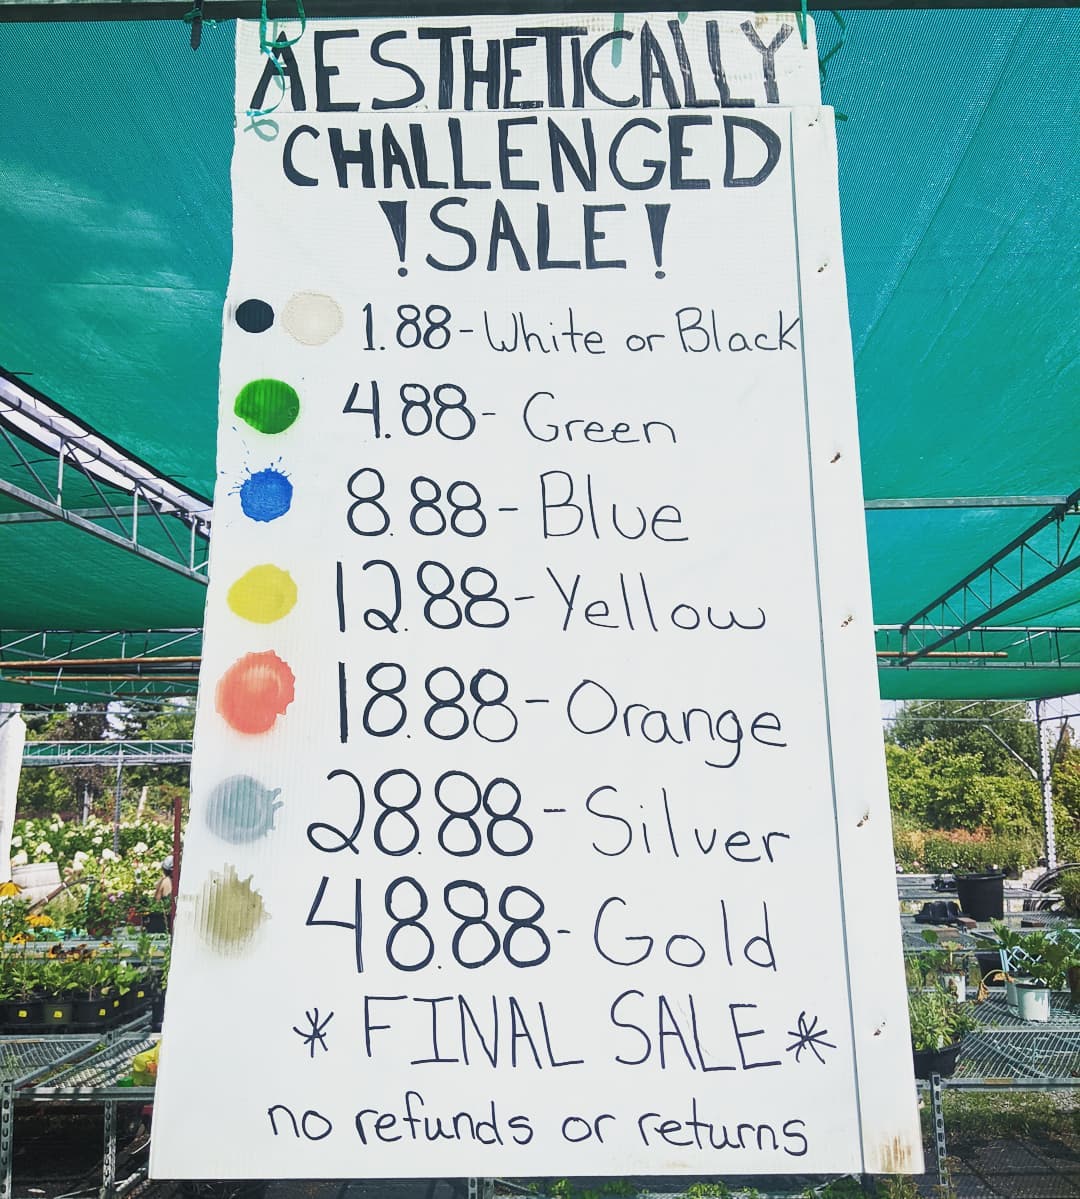 AESTHETICALLY
CHALLENGED
!SALE!
1.88-White or Black
4.88- Green
8.88- Blue
12.88- Yellow
18.88- Orange
28.88- Silver
48.88- Gold
* FINAL SALE *
no refunds or returns